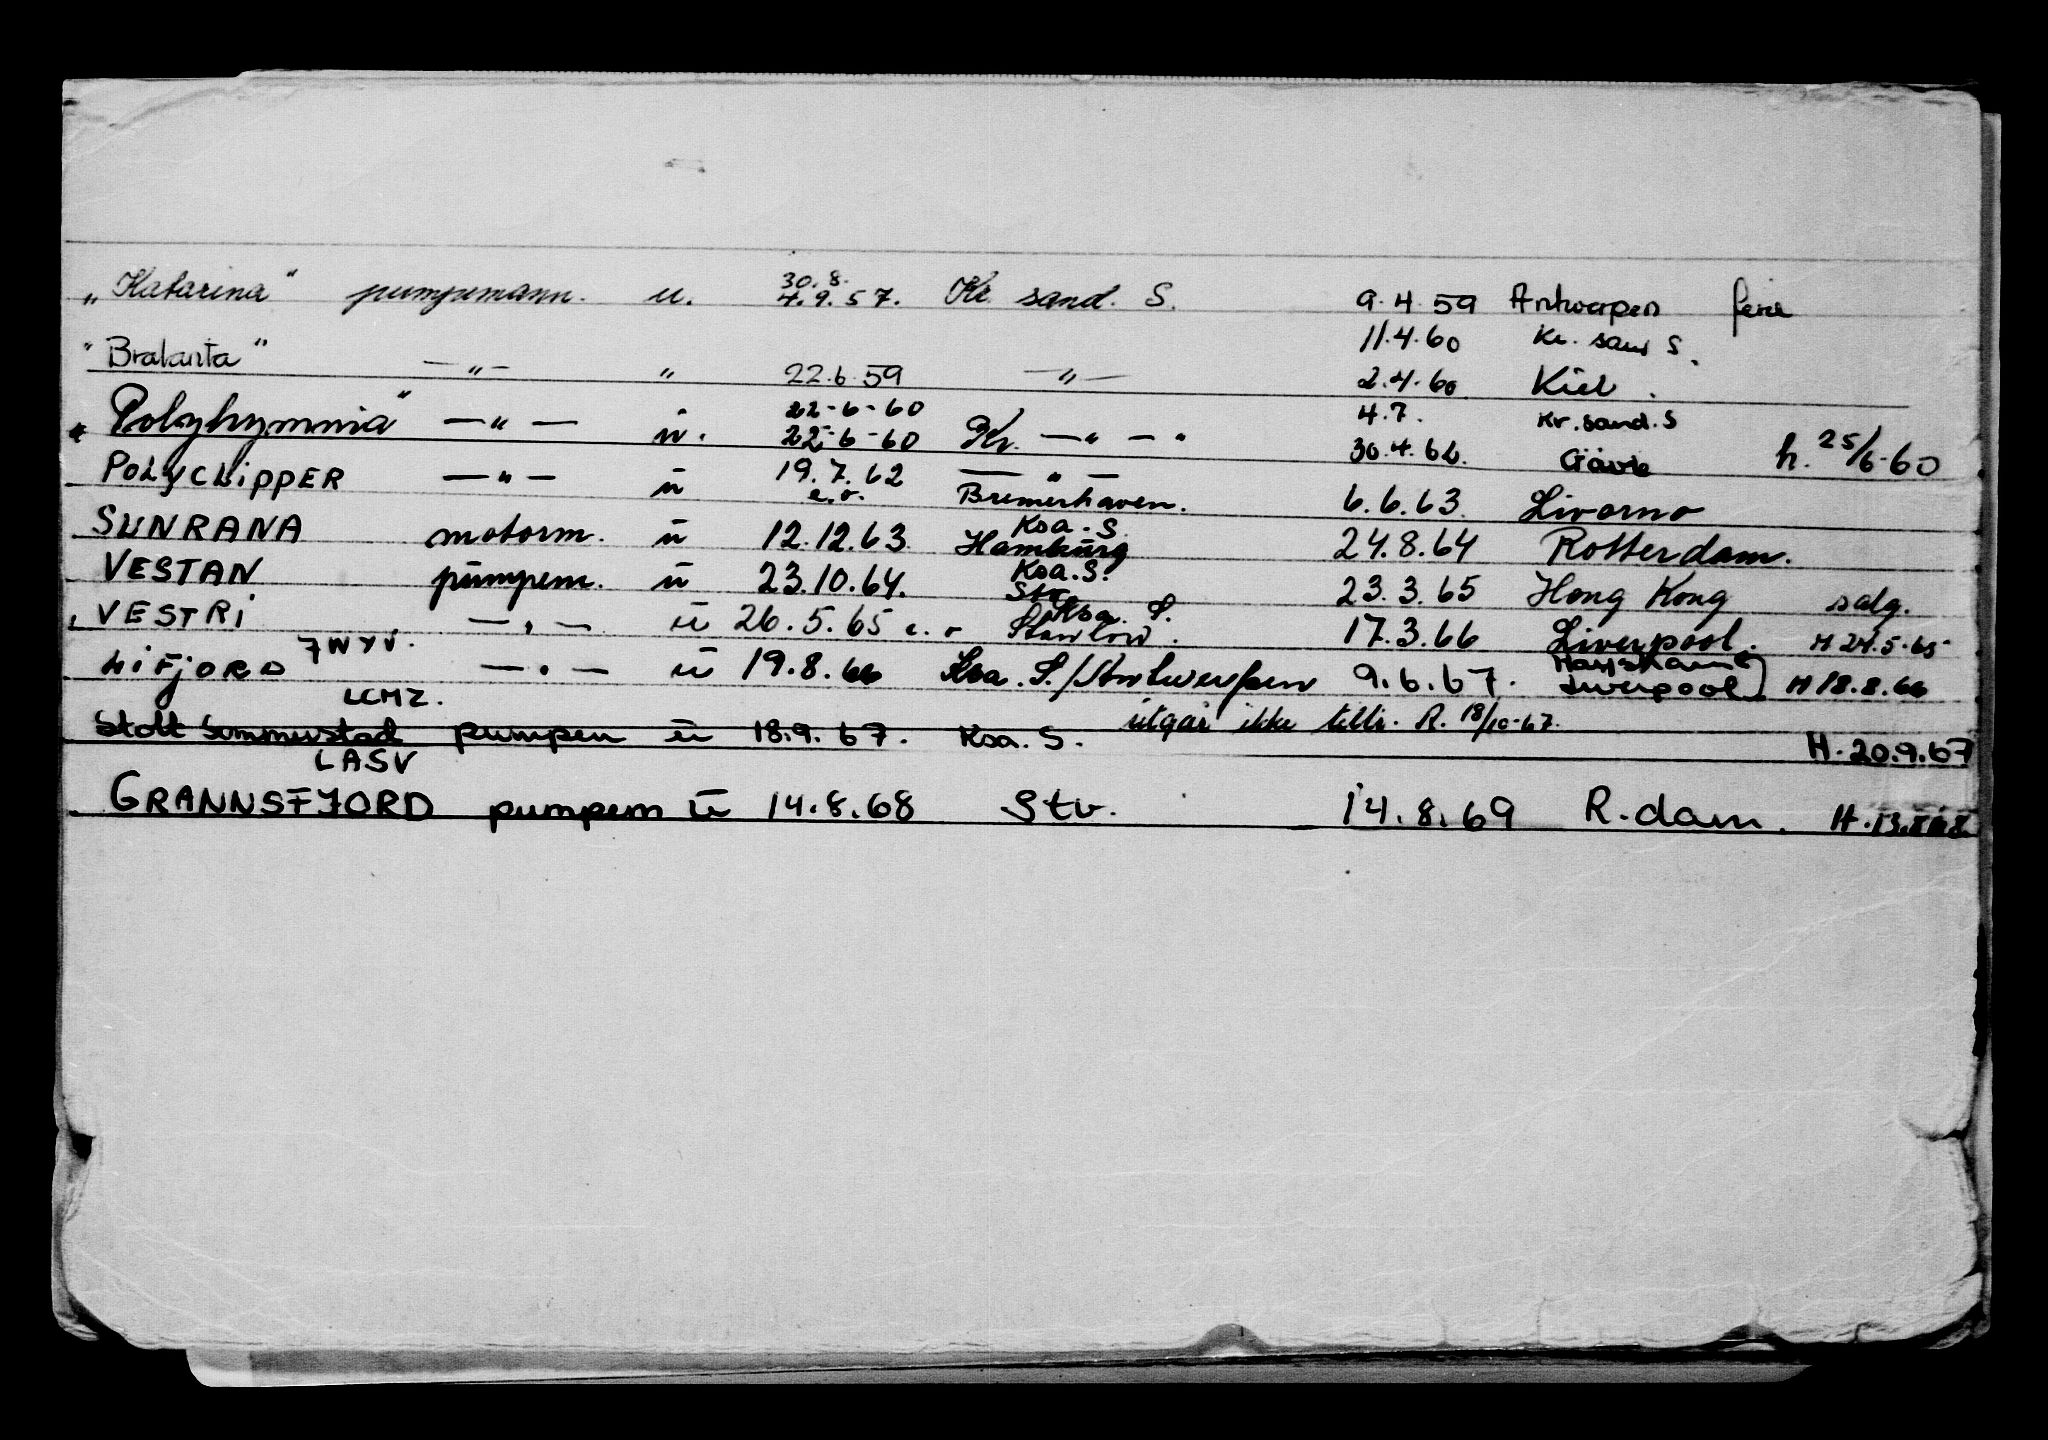 30.8.
„Katarina" pumpemann. u. 4.9.57. Kr sand. S. 9.4.59 Antwerpen ferie
11.4.60 Kr. sand S.
"Bralanta" —„— „ 22.6.59 —„— 2.4.60 Kiel.
22-6-60 4.7. Kr.sand.S
„Polyhymnia" —„— ü. 22-6-60 Kr. —„— „ 30.4.62. Gävle h. 25/6-60
POLYCLIPPER —„— ü 19.7.62 —„—
e.o. Bremerhaven. 6.6.63. Livorno
Ksa. S.
SUNRANA motorm. ü 12.12.63 Hamburg 24.8.64 Rotterdam.
Ksa. S.
VESTAN pumpem. ü 23.10.64. Stv. 23.3.65 Hong Kong salg.
Ksa. S.
VESTRI —„— ü 26.5.65 e.o Stanlow. 17.3.66 Liverpool. H 24.5.65
JWYV.
LIFJORD —„— ü 19.8.66 Ksa. S./Antwerpen 9.6.67. Liverpool H 18.8.66
LCMZ.
utgår ikke tiltr. R. 18/10-67.
Stolt Sommerstad pumpem ü 18.9.67. Ksa. S. H. 20.9.67
LASV
GRANNSFJORD pumpem ü 14.8.68 Stv. 14.8.69 R.dam. H. 13.8.68